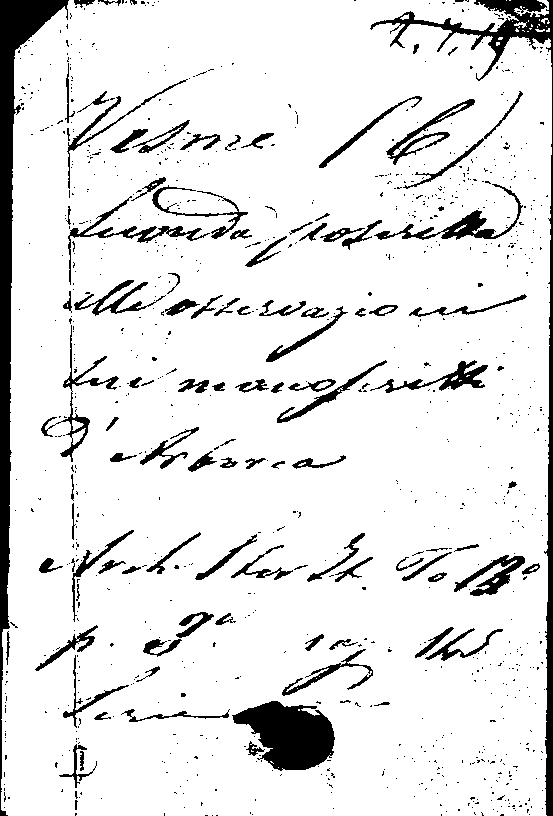 2.7.19
Vesme (C)
Seconda poscritta
alle osservazioni
sui manoscritti
d'Arborea
Arch. Stor It. To 12°
p. 2ª pag. 145
Serie